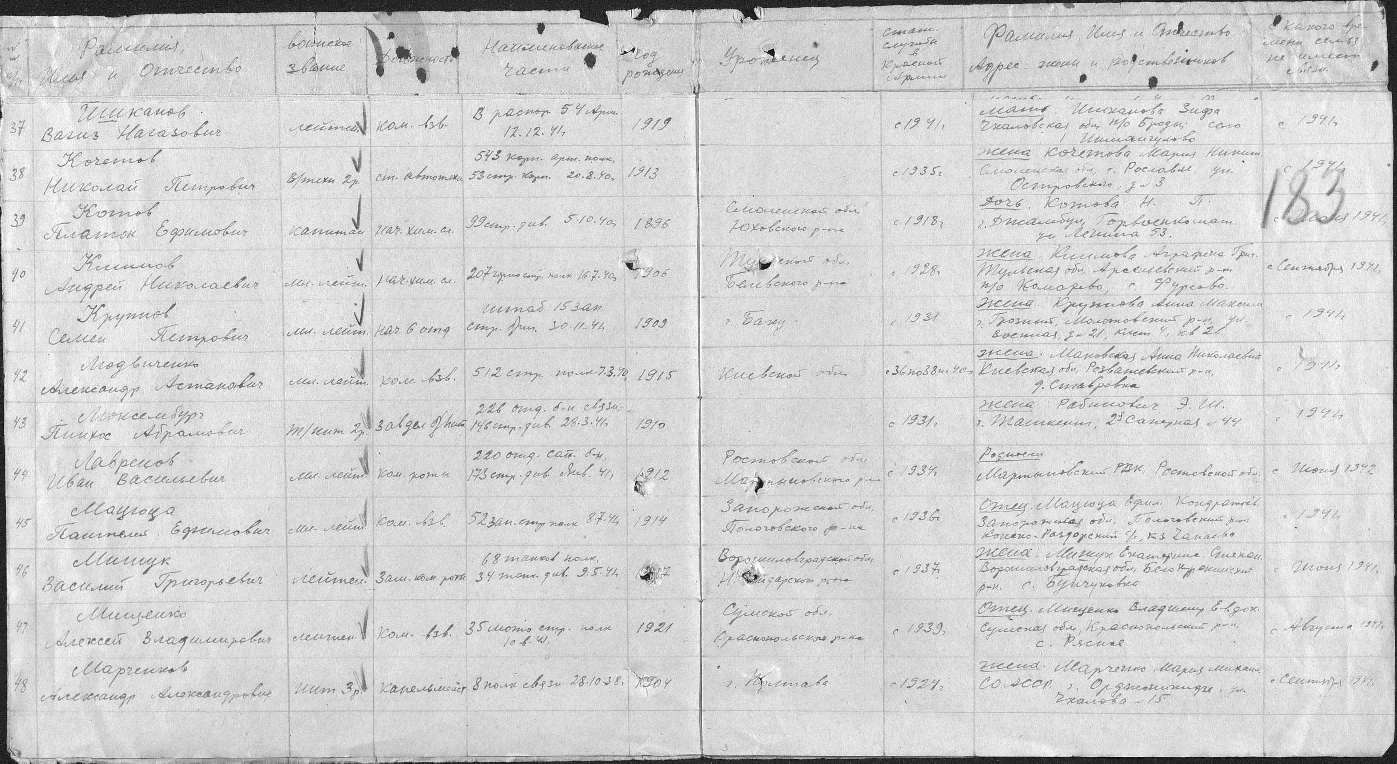 № п/п Фамилия, Имя и Отчество воинское звание Должность Наименование части Год рождения Уроженец стаж службы в Красной Армии Фамилия, Имя и Отчество Адрес жены и родственников с какого времени семья не имеет связи
183
37 Шиканов Вагиз Нагазович лейтен. ком. взв. В распор. 54 Арм. 12.12.41г 1919 с 1941г мать Шиканова Зифа
Чкаловская обл. п/о Броды село с 1941г
38 Кочетов Николай Петрович В/техн 2р. ст. автотехн. 543 корп. арт. полк, 53 стр. корп. 20.8.40г 1913 с 1935г жена Кочетова Мария Никит.
Смоленская обл. г. Рославль ул. Островского, д. 3 с 1941г
39 Котов Платон Ефимович капитан нач. хим. сл. 99 стр. див. 5.10.40г 1896 Смоленской обл. Юхновского р-на с 1918г дочь Котова Н. П.
г. Джамбул, Горвоенкомат ул. Ленина 53. 1941г
40 Климов Андрей Николаевич мл. лейт. нач. хим. сл. 207 горно стр. полк 16.7.40г 1906 Тульской обл. Белевского р-на с 1928г жена Климова Аграфена Григ.
Тульская обл. Арсеньевский р-н п/о Комарево, с. Фурсово. с Сентября 1941г
41 Крупнов Семен Петрович мл. лейт. нач 6 отд штаб 15 зап. стр. бриг. 30.11.41г 1909 г. Баку с 1931 жена Крупнова Анна Максим.
г. Грозный, Молотовский р-н, ул. Военная, д. 21, кв 21 с 1941г
42 Людвиченко Александр Астапович мл. лейт. ком. взв. 512 стр. полк 7.3.40 1915 Киевской обл. с 36 по 38 и 40г жена Маковская Анна Николаевна
Киевская обл. Розважевский р-н, д. Ставровка 1941г
43 Люксембург Пинхос Абрамович т/инт 2р. зав дел о/пит 226 отд. б-н связи 146 стр. див 26.3.41г 1910 с 1931г жена Рабинович Э. Ш.
г. Ташкент, 2я Саперная д 44 с 1941г
44 Лавренов Иван Васильевич мл. лейт. ком. роты 220 отд. сап. б-н, 173 стр. див Янв. 41г 1912 Ростовской обл. Мартыновского р-на с 1934г
Мартыновский РВК, Ростовской обл. с Июня 1942
45 Мацюца Пантелей Ефимович мл. лейт. ком. взв. 52 зап. стр полк 8.7.41г 1914 Запорожской обл. Пологовского р-на с 1936г Отец Мацюца Ефим Кондратьев.
Запорожская обл. Пологовский р-н Конско-Раздорский с/с, к-з Чапаева с 1941г
46 Мищук Василий Григорьевич лейтен. Зам. ком роты 68 танков. полк, 34 танк. див. 9.5.41г Ворошиловградской обл. с 1937 жена Мищук Екатерина Степан.
Ворошиловградская обл. Белокуракинский р-н. с. Бунчуковка с Июня 1941г
47 Мищенко Алексей Владимирович лейтен. ком. взв. 35 мото стр. полк 10 в 41 1921 Сумской обл. Краснопольского р-на с 1939г Отец Мищенко Владимир Евдок.
Сумская обл, Краснопольский р-н, с. Рясное с Августа 1941г
48 Марченков Александр Александрович инт 3р. капельмейст 8 полк связи 28.10.38г 1904 г. Полтава с 1927г жена Марченко Мария Михаил.
СОАССР г. Орджоникидзе, ул. Чкалова - 15 с Сентября 1941г